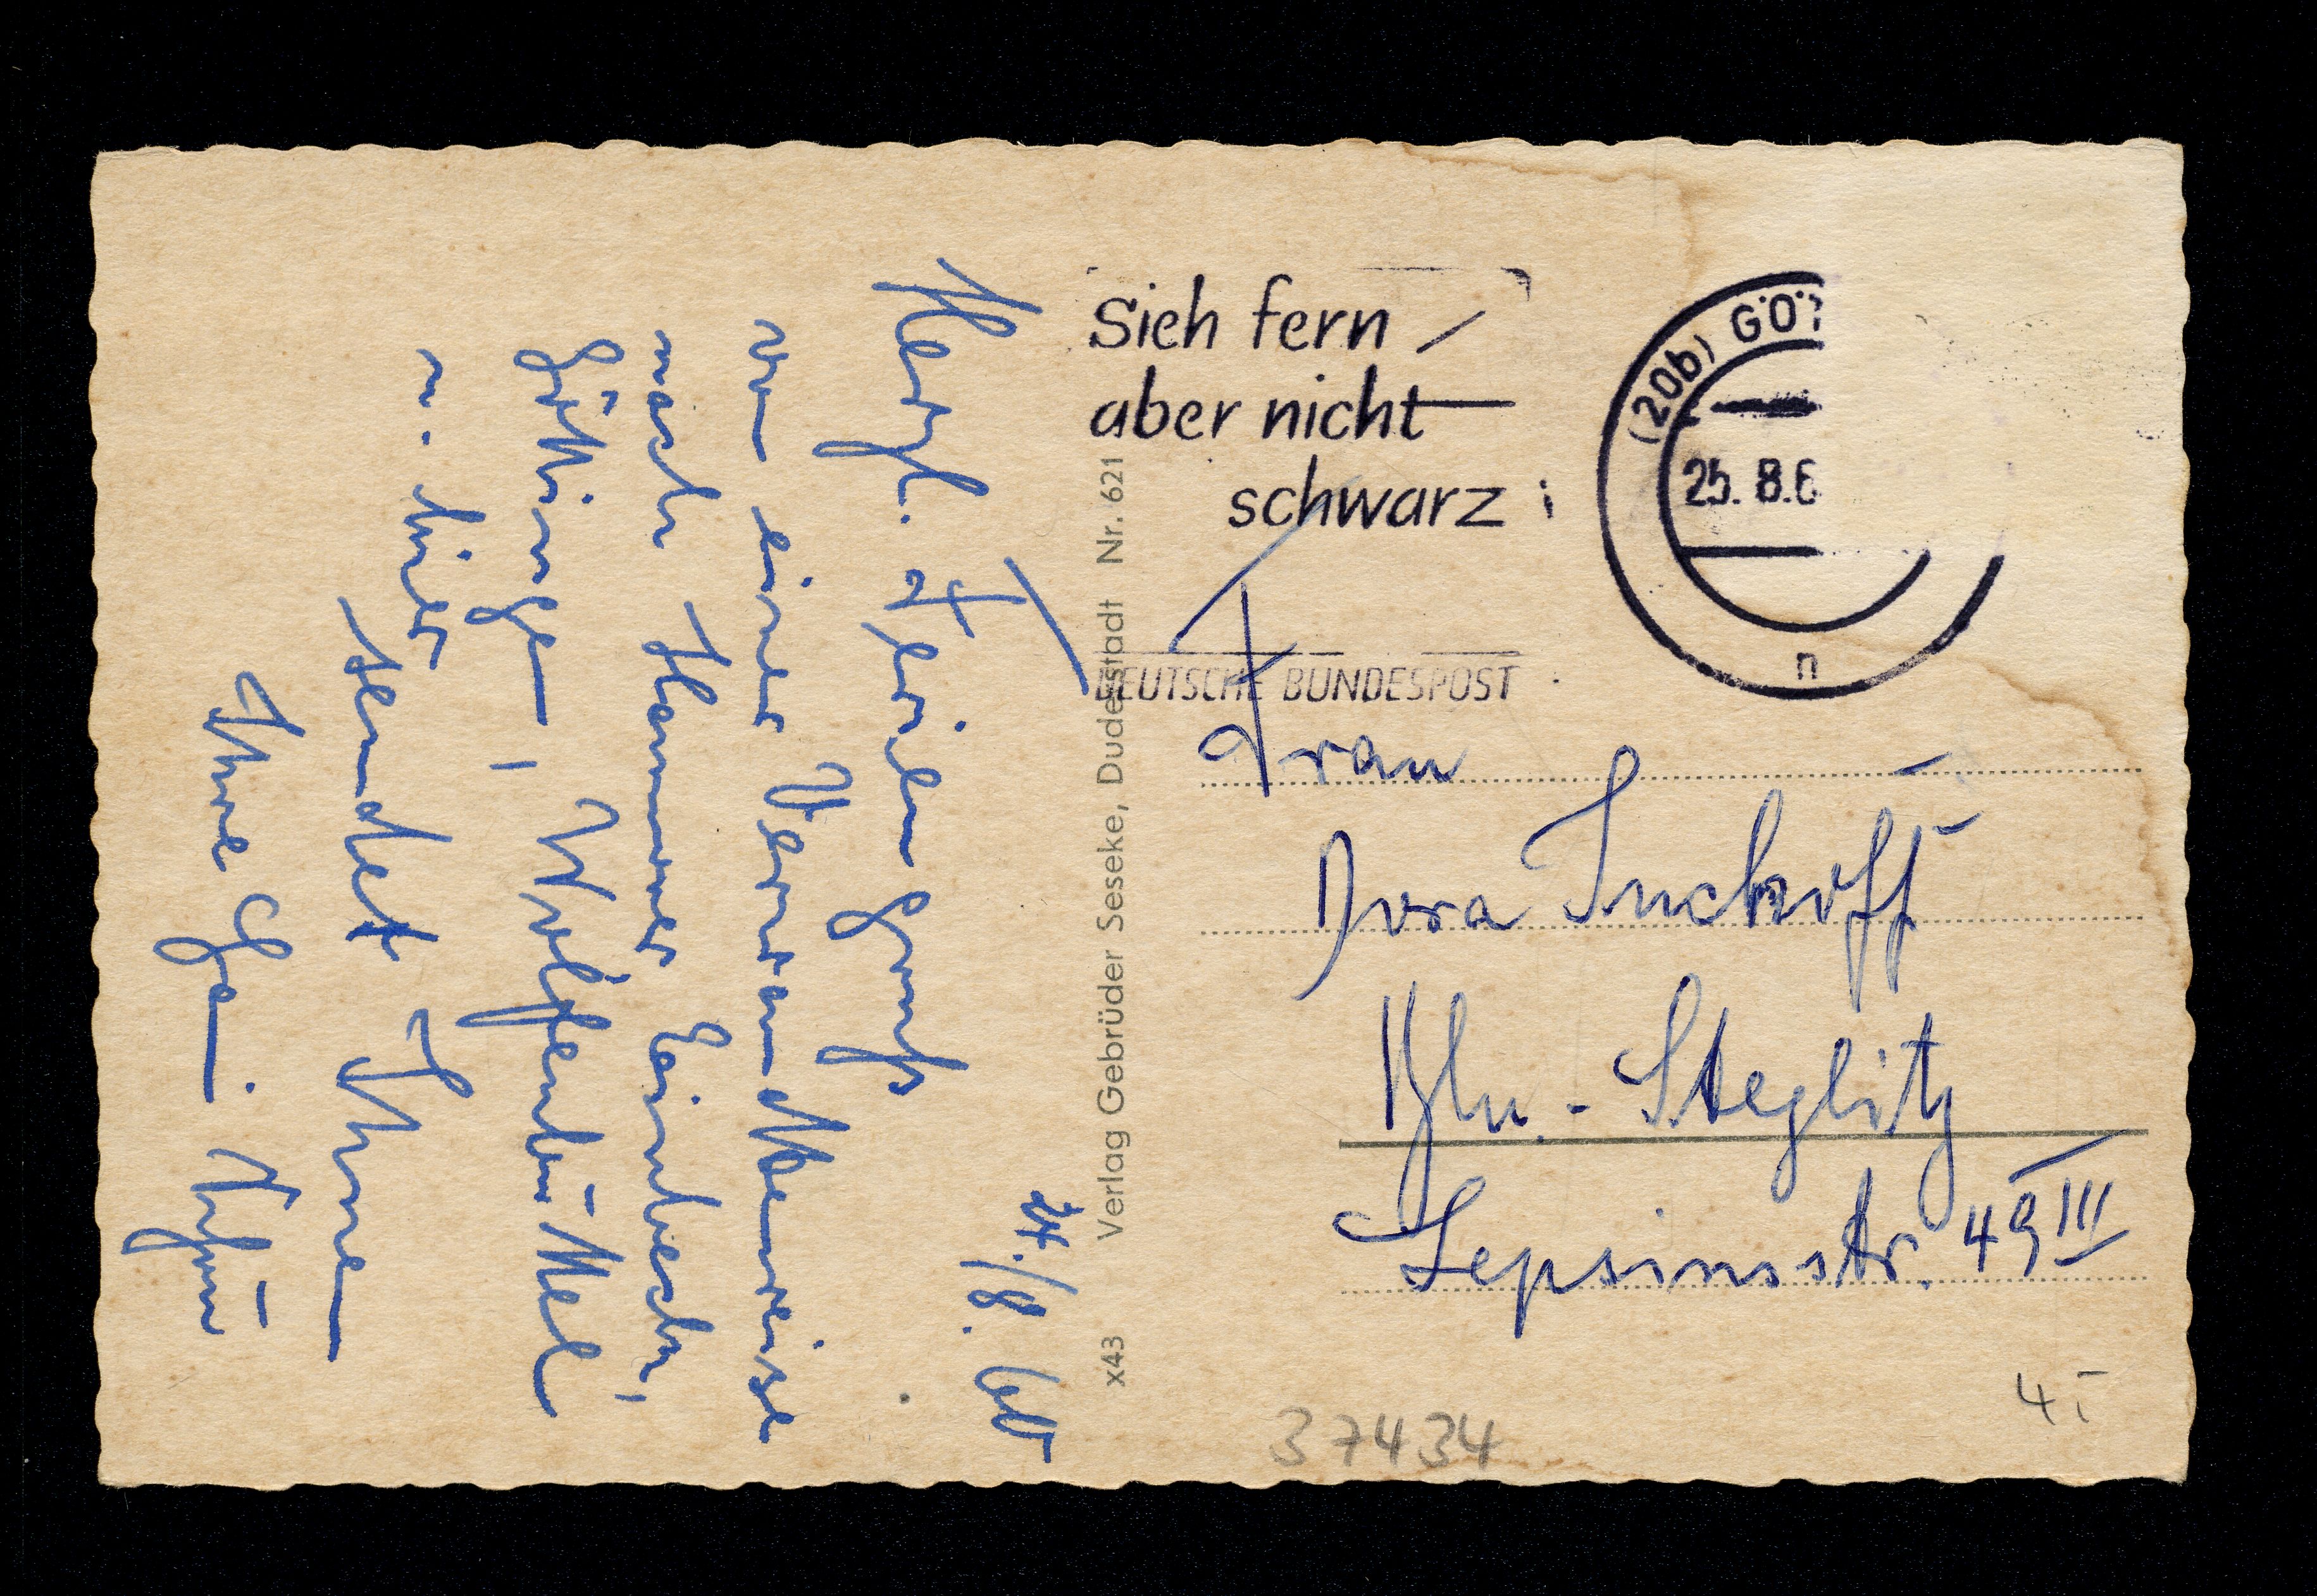 24./8. 60
Herzl. Feriengruß
von einer Verwandtenreise
nach Hannover Einbeck,
Göttingen, Wolfenbüttel
u. hier
sendet Ihnen
Ihre
x43 Verlag Gebrüder Seseke, Duderstadt Nr. 621
Sieh fern
aber nicht
schwarz
DEUTSCHE BUNDESPOST
(20b) GÖT
25. 8.6
n
Frau
Dora Suckoff
Bln.-Steglitz
Lepsiusstr. 49 III
37434